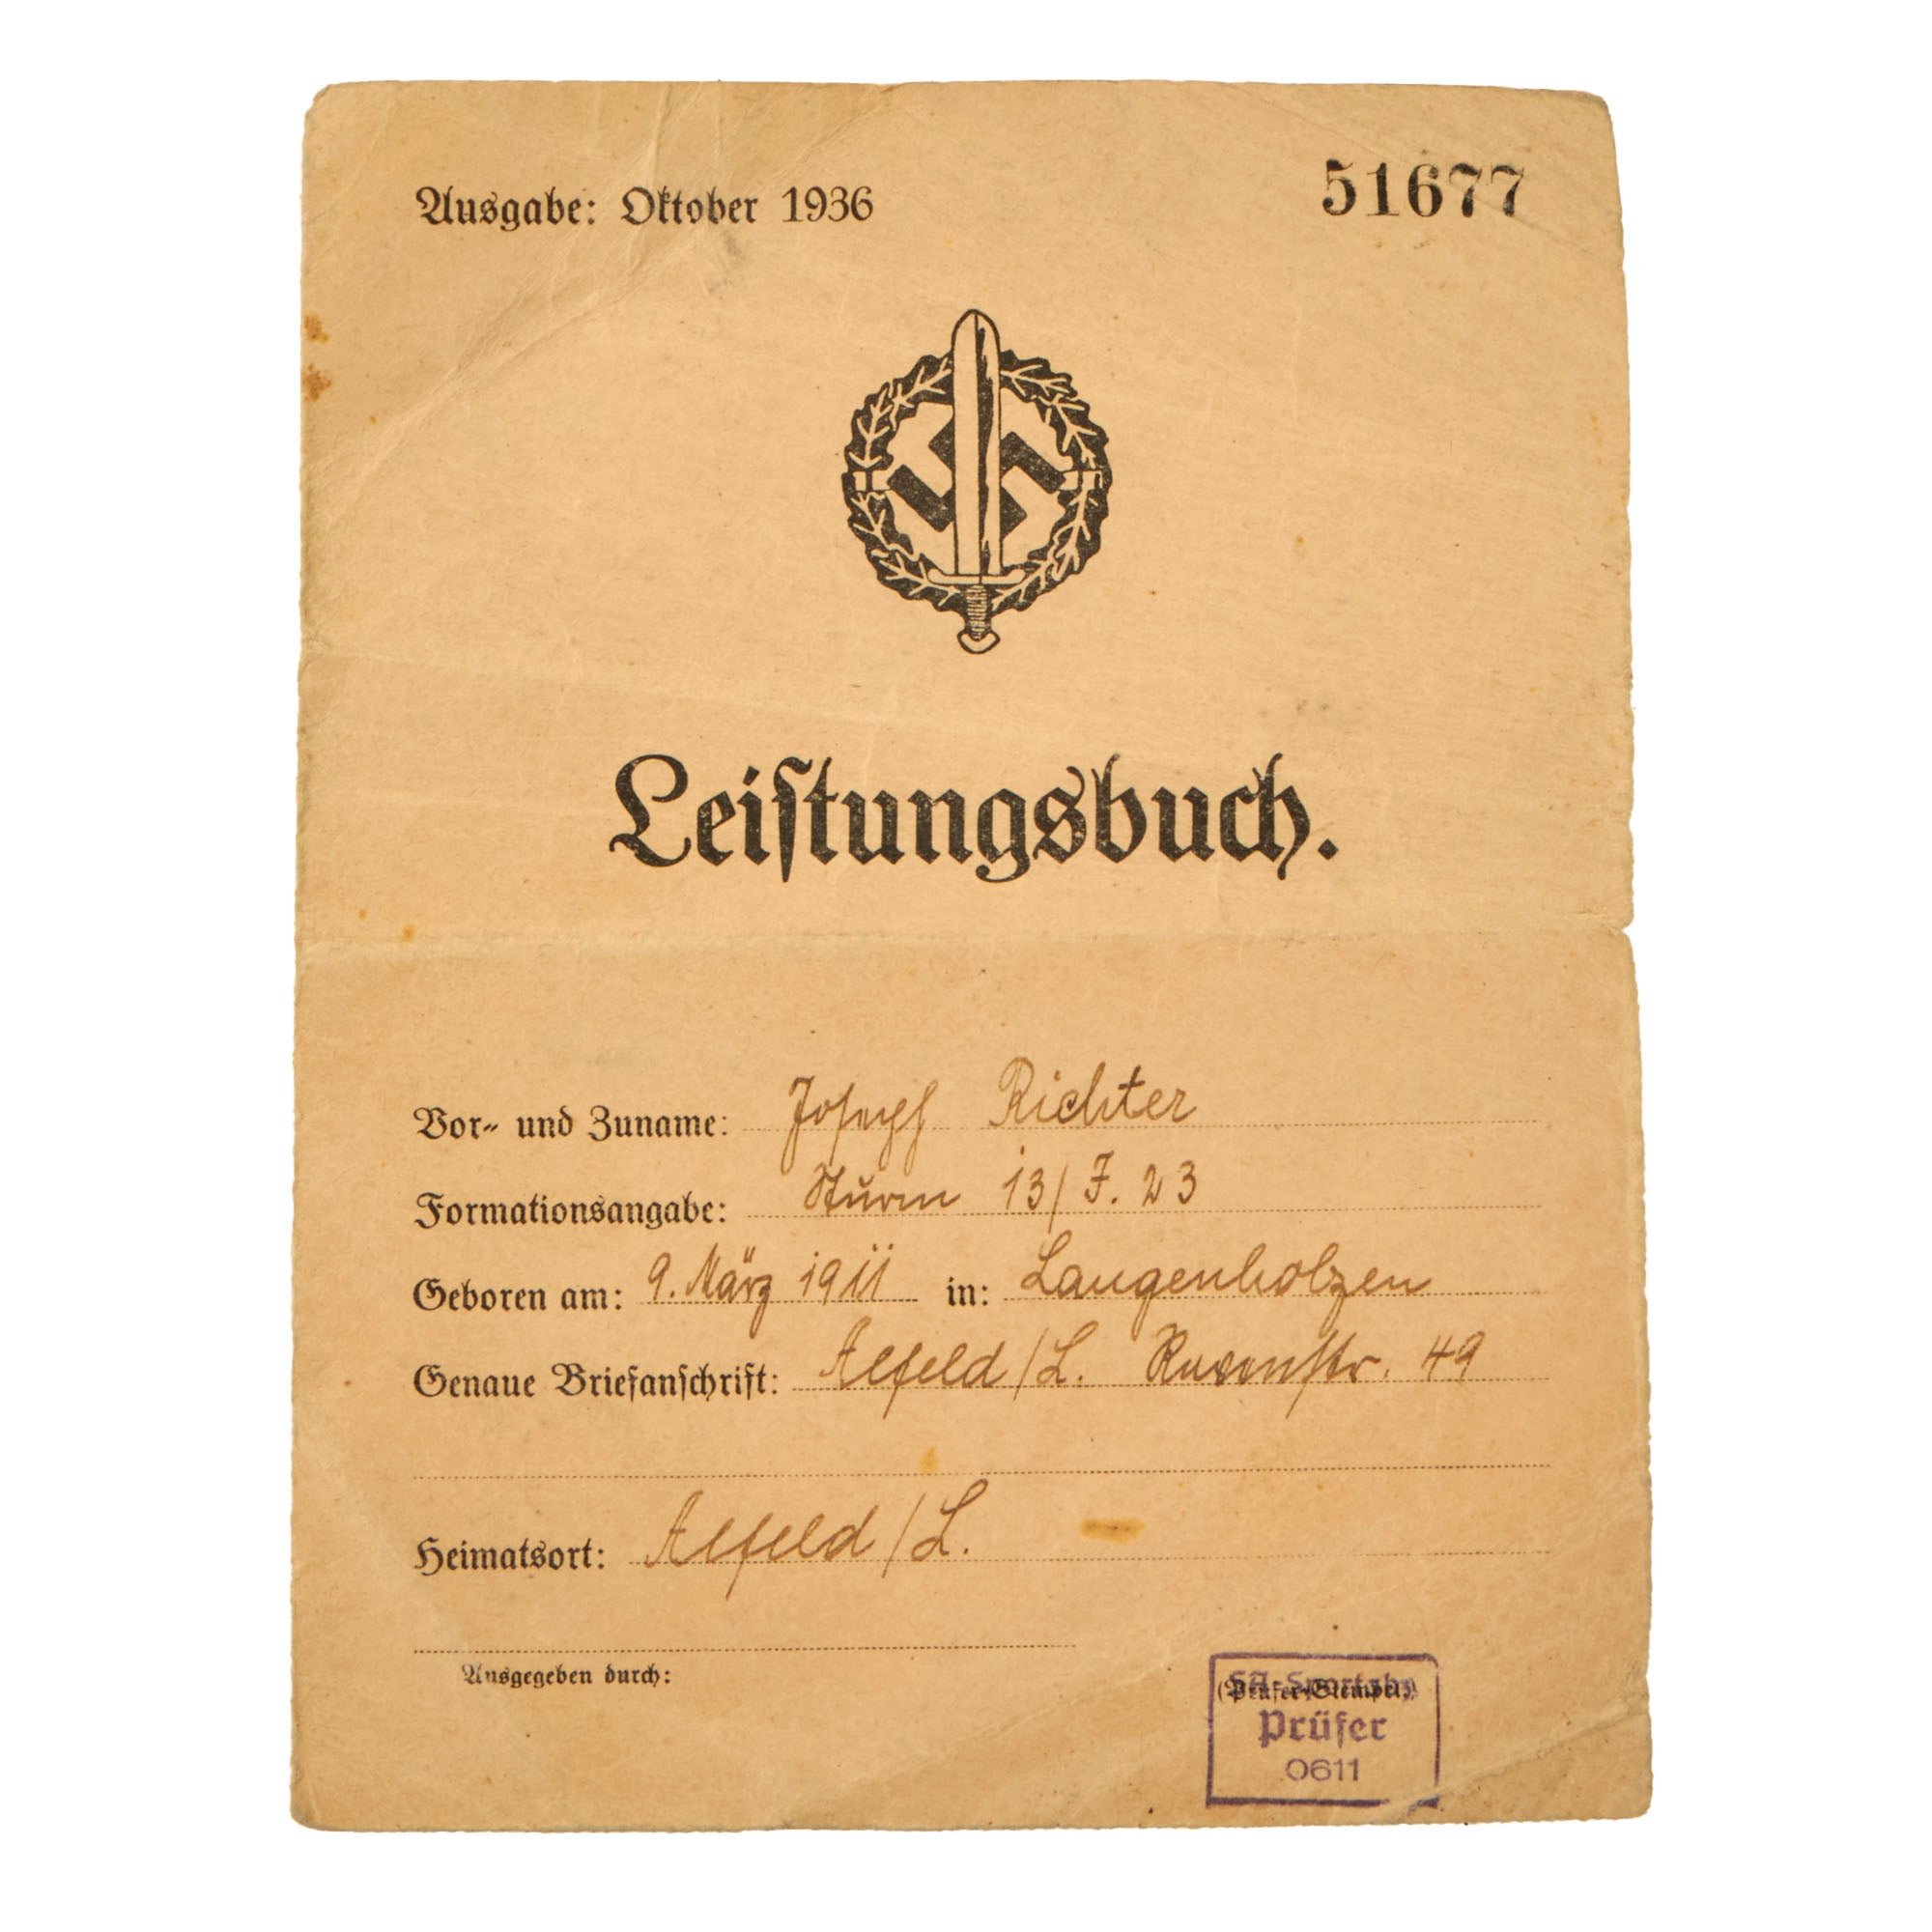 Ausgabe: Oktober 1936
51677
Leiſtungsbuch.
Vor- und Zuname: Joseph Richter
Formationsangabe: Sturm 13/J. 23
Geboren am: 9. März 1911 in: Langenholzen
Genaue Briefanſchrift: Alfeld/L. 49
Heimatsort: Alfeld/L.
Ausgegeben durch:
(Prüfer-Stempel)
SA-Sportabz.
Prüfer
0611